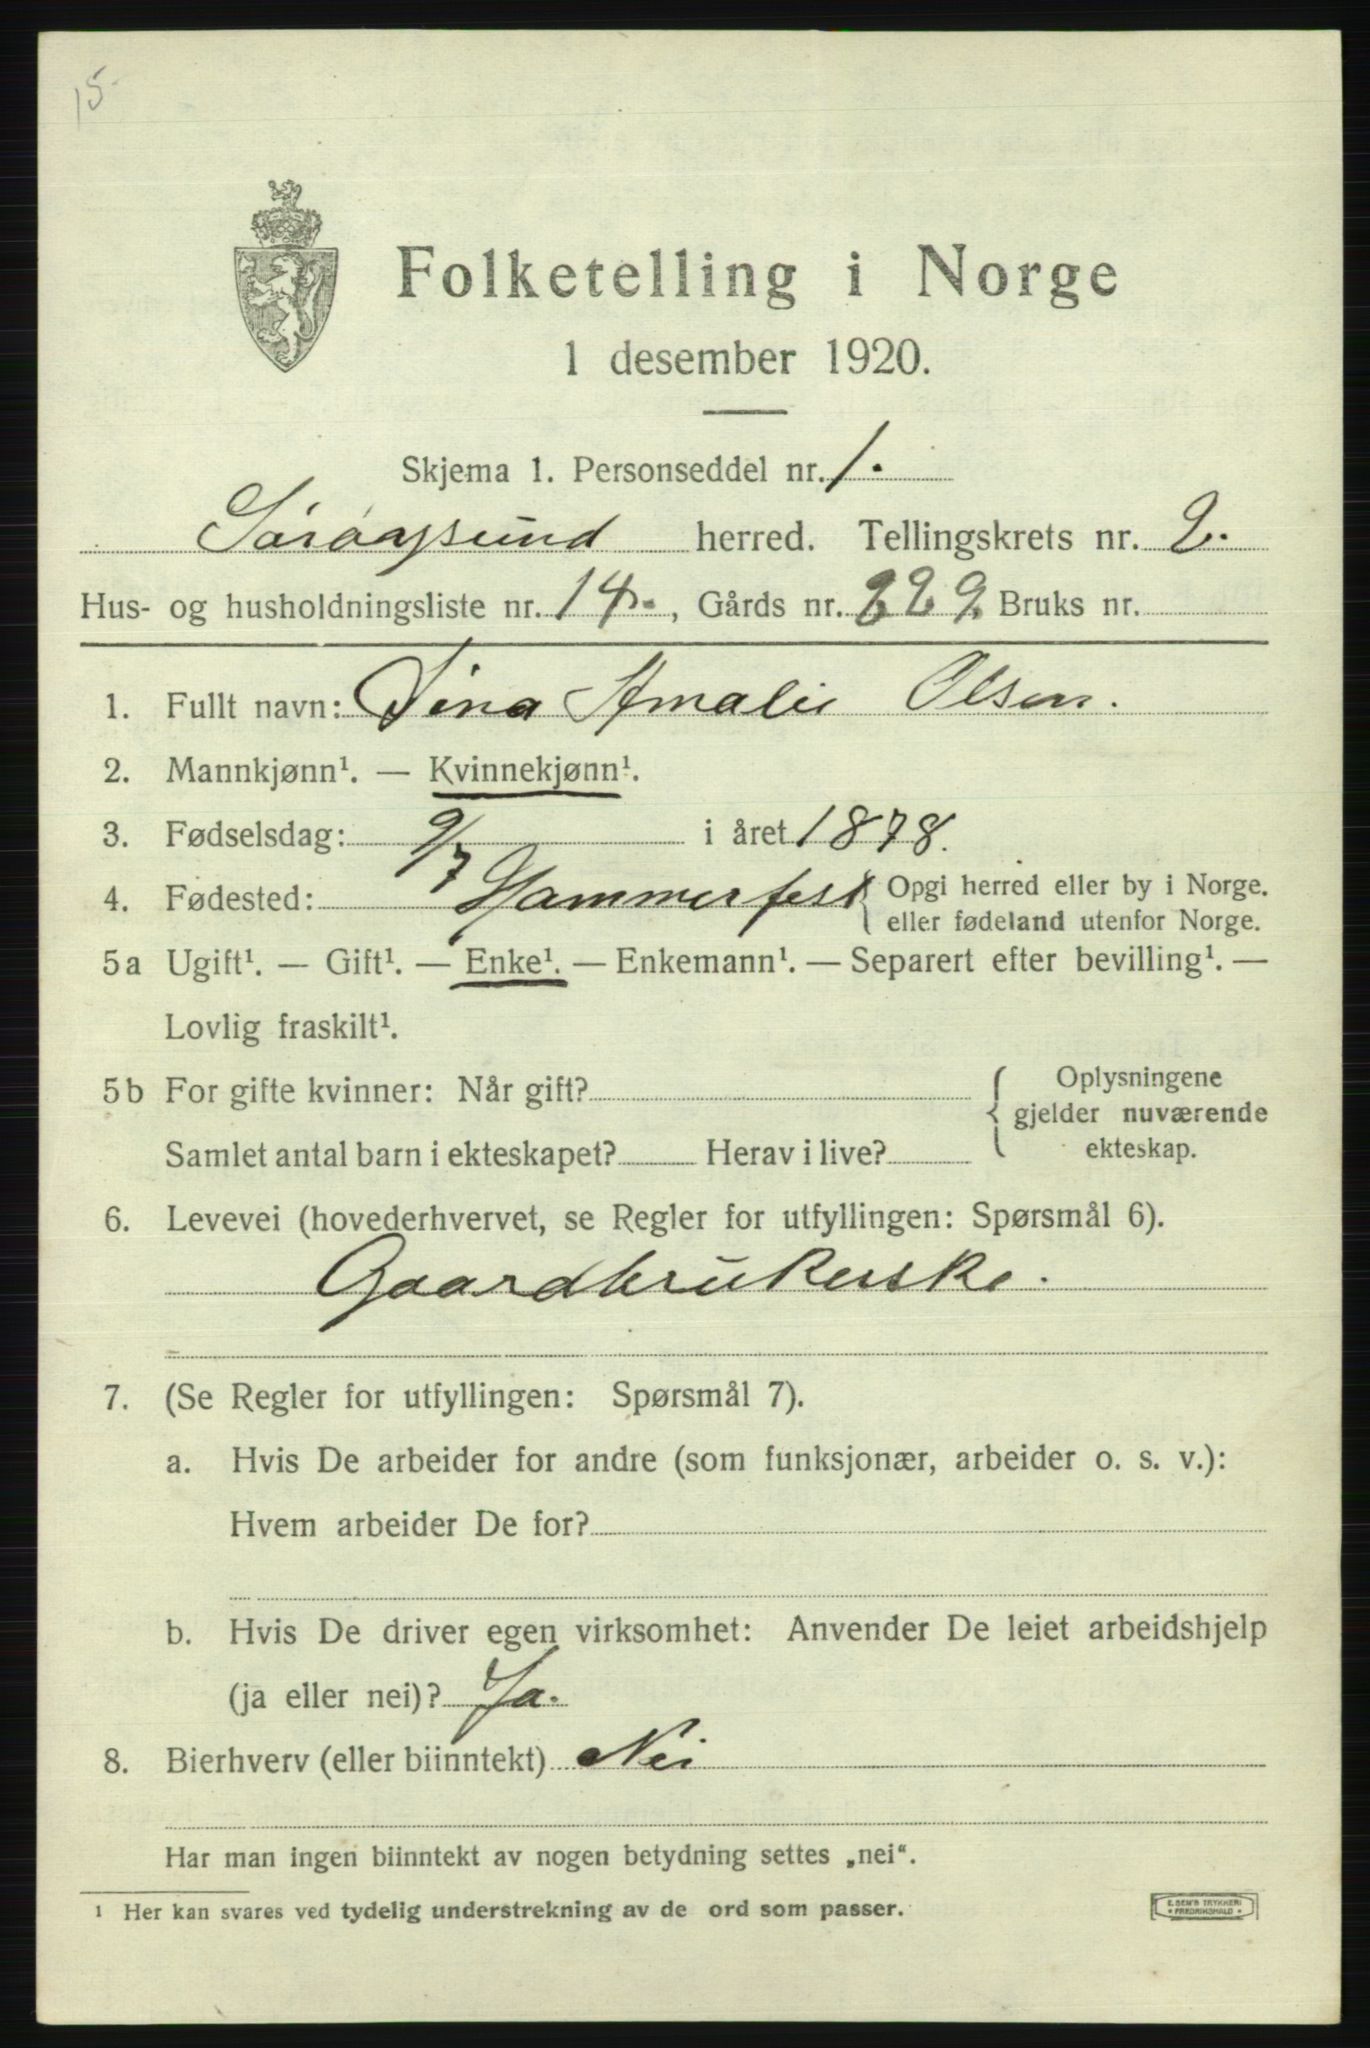 15
Folketelling i Norge
1 desember 1920.
Skjema 1. Personseddel nr. 1.
Sørøysund herred. Tellingskrets nr. 2.
Hus- og husholdningsliste nr. 14., Gårds nr. 229 Bruks nr.
1. Fullt navn: Sina Amalie Olsen.
2. Mannkjønn¹. — Kvinnekjønn¹.
3. Fødselsdag: 9/7 i året 1878.
4. Fødested: Hammerfest { Opgi herred eller by i Norge.
eller fødeland utenfor Norge.
5a Ugift¹. — Gift¹. — Enke¹. — Enkemann¹. — Separert efter bevilling¹. —
Lovlig fraskilt¹.
5b For gifte kvinner: Når gift?
Samlet antal barn i ekteskapet? Herav i live?
{ Oplysningene
gjelder nuværende
ekteskap.
6. Levevei (hovederhvervet, se Regler for utfyllingen: Spørsmål 6).
Gaardbrukerske.
7. (Se Regler for utfyllingen: Spørsmål 7).
a. Hvis De arbeider for andre (som funksjonær, arbeider o. s. v.):
Hvem arbeider De for?
b. Hvis De driver egen virksomhet: Anvender De leiet arbeidshjelp
(ja eller nei)? Ja.
8. Bierhverv (eller biinntekt) Nei
Har man ingen biinntekt av nogen betydning settes „nei“.
¹ Her kan svares ved tydelig understrekning av de ord som passer.
E. SEM'S TRYKKERI
FREDRIKSHALD